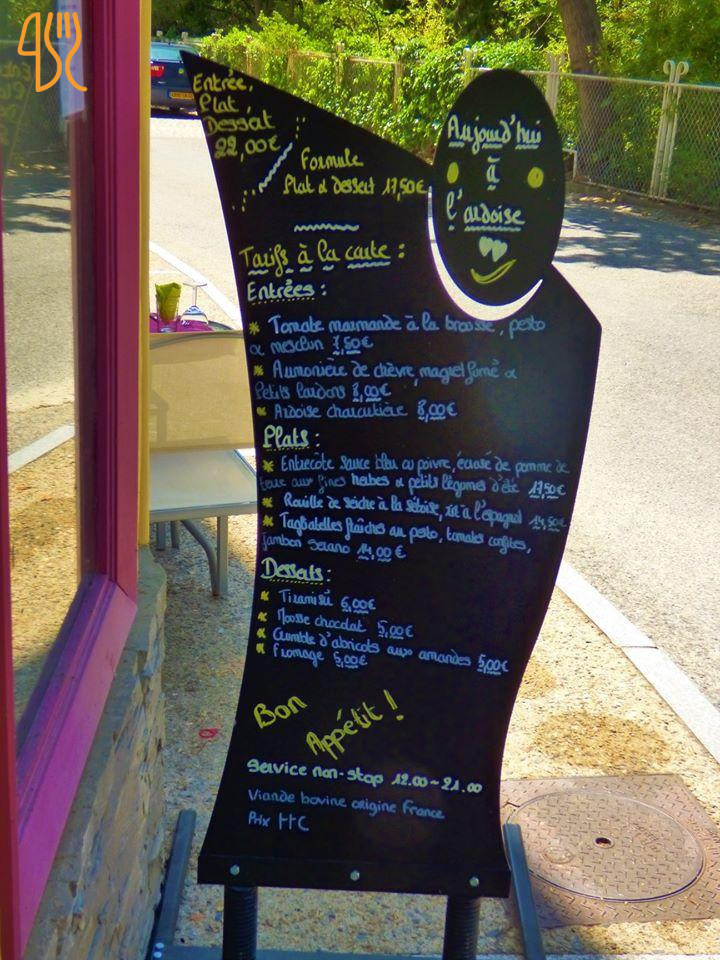 Entrée,
Plat,
Dessert
22,00€
Formule
Plat & dessert 17,50€
Aujourd'hui
à
l'ardoise
Tarifs à la carte :
Entrées :
* Tomate marmande à la brousse, pesto
& mesclun 7,50€
* Aumonière de chèvre, magret fumé &
Petits lardons 8,00€
* Ardoise charcutière 8,00€
Plats :
* Entrecôte sauce bleu ou poivre, écrasé de pomme de
terre aux fines herbes & petits légumes d'été 17,50€
* Rouille de seiche à la sétoise, riz à l'espagnol 14,50€
* Tagliatelles fraîches au pesto, tomates confites,
jambon serano 14,00€
Desserts :
* Tiramisu 6,00€
* Mousse chocolat 5,00€
* Crumble d'abricots aux amandes 5,00€
* Fromage 5,00€
Bon
Appétit !
Service non-stop 12.00~21.00
Viande bovine origine France
Prix TTC